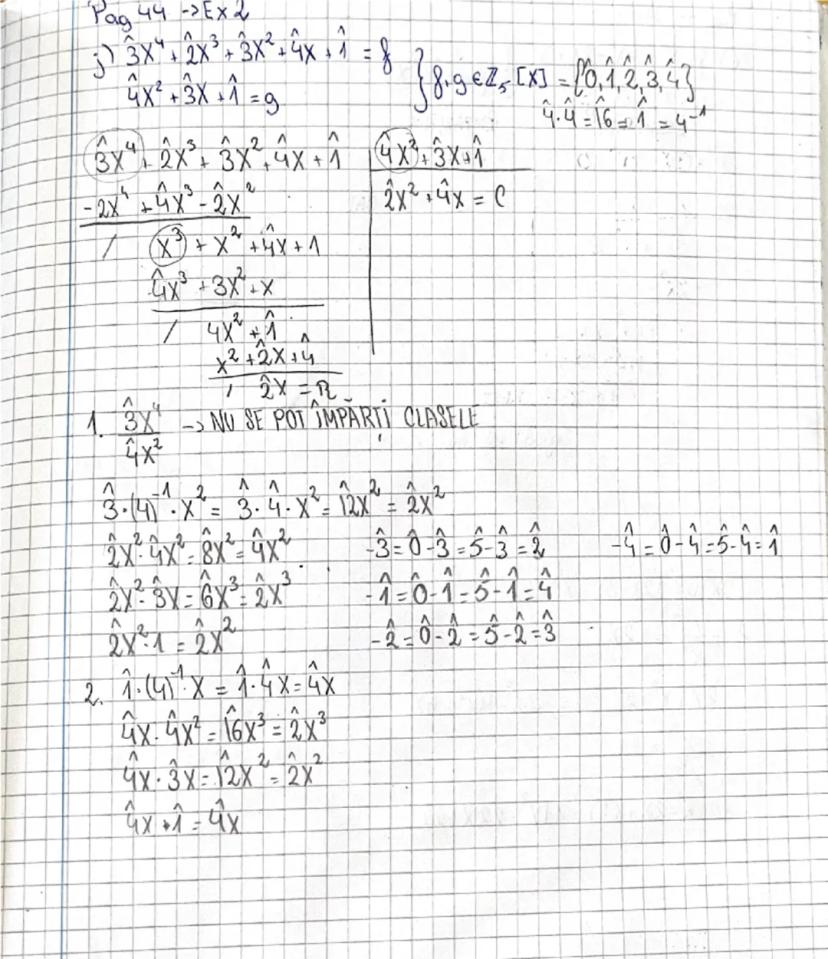 Pag 44 → Ex 2
j) 3̂X⁴ + 2̂X³ + 3̂X² + 4̂X + 1̂ = f
4̂X² + 3̂X + 1̂ = g
} f, g ∈ ℤ₅[X] = {0̂, 1̂, 2̂, 3̂, 4̂}
4̂·4̂ = 1̂6 = 1̂ = 4⁻¹
3̂X⁴ + 2̂X³ + 3̂X² + 4̂X + 1̂ | 4̂X² + 3̂X + 1̂
-2X⁴ + 4̂X³ - 2̂X² | 2̂X² + 4̂X = C
/ X³ + X² + 4̂X + 1
4̂X³ + 3X² + X
/ 4X² + 1̂
X² + 2̂X + 4̂
/ 2̂X = R
1. 3̂X⁴ / 4̂X² → NU SE POT ÎMPĂRȚI CLASELE
3̂·(4)⁻¹·X² = 3̂·4̂·X² = 1̂2X² = 2̂X²
2̂X²·4̂X² = 8̂X² = 4̂X² -3̂ = 0̂-3̂ = 5̂-3̂ = 2̂ -4̂ = 0̂-4̂ = 5̂-4̂ = 1̂
2̂X²·3̂X = 6̂X³ = 2̂X³ -1̂ = 0̂-1̂ = 5̂-1̂ = 4̂
2̂X²·1 = 2̂X² -2̂ = 0̂-2̂ = 5̂-2̂ = 3̂
2. 1̂·(4)⁻¹·X = 1̂·4̂X = 4̂X
4̂X·4̂X² = 1̂6X³ = 2̂X³
4̂X·3̂X = 1̂2X² = 2̂X²
4̂X+1̂ = 4̂X